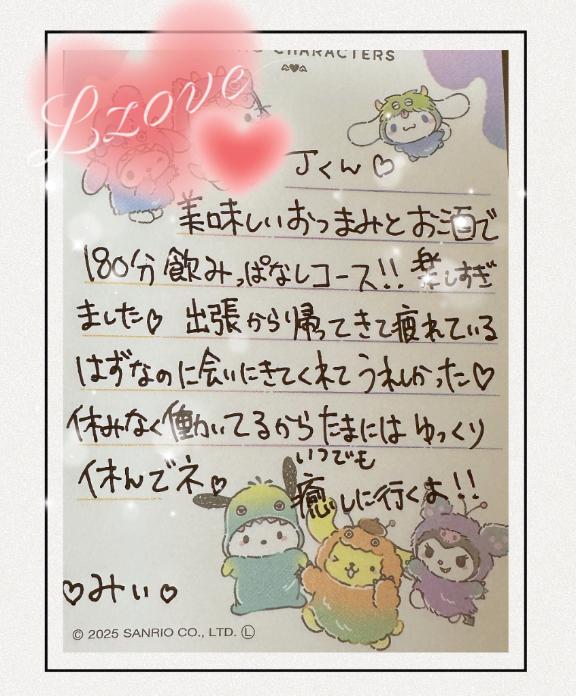 CHARACTERS
Love
Jくん♡
美味しいおつまみとお酒で
180分飲みっぱなしコース!! 楽しすぎ
ました♡ 出張から帰ってきて疲れている
はずなのに会いにきてくれてうれしかった♡
休みなく働いてるからたまにはゆっくり
休んでネ♡ いつでも
癒しに行くよ!!
♡みい♡
© 2025 SANRIO CO., LTD. Ⓛ